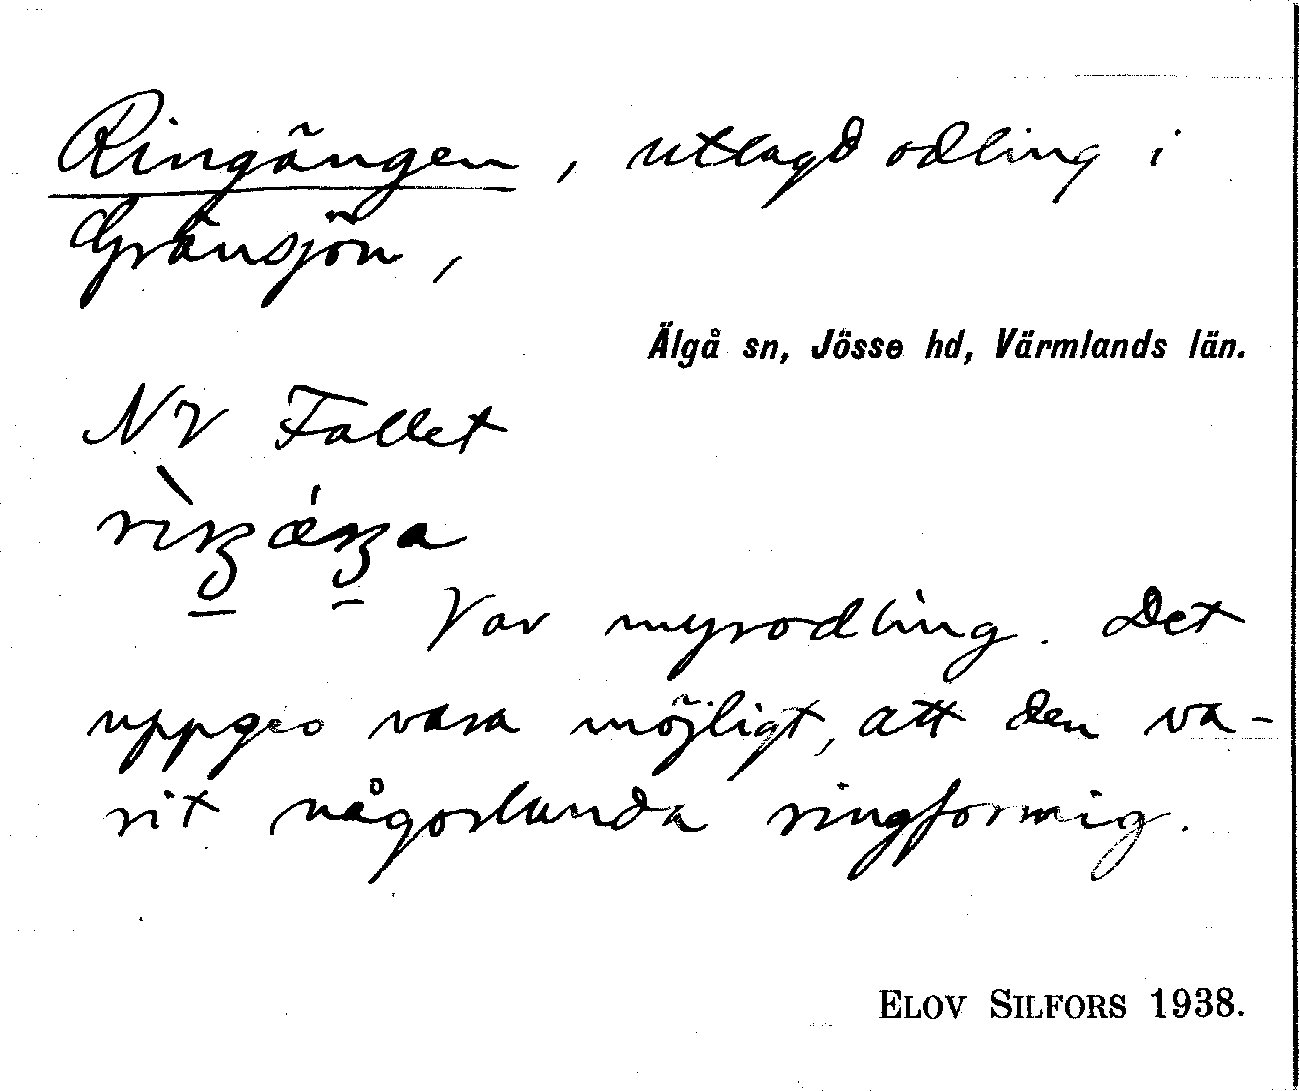 Ringängen, utlagd odling i
Gränsjön,
Älgå sn, Jösse hd, Värmlands län.
NV Fallet
Var myrodling. Det
uppges vara möjligt, att den va-
rit någorlunda ringformig.
ELOV SILFORS 1938.